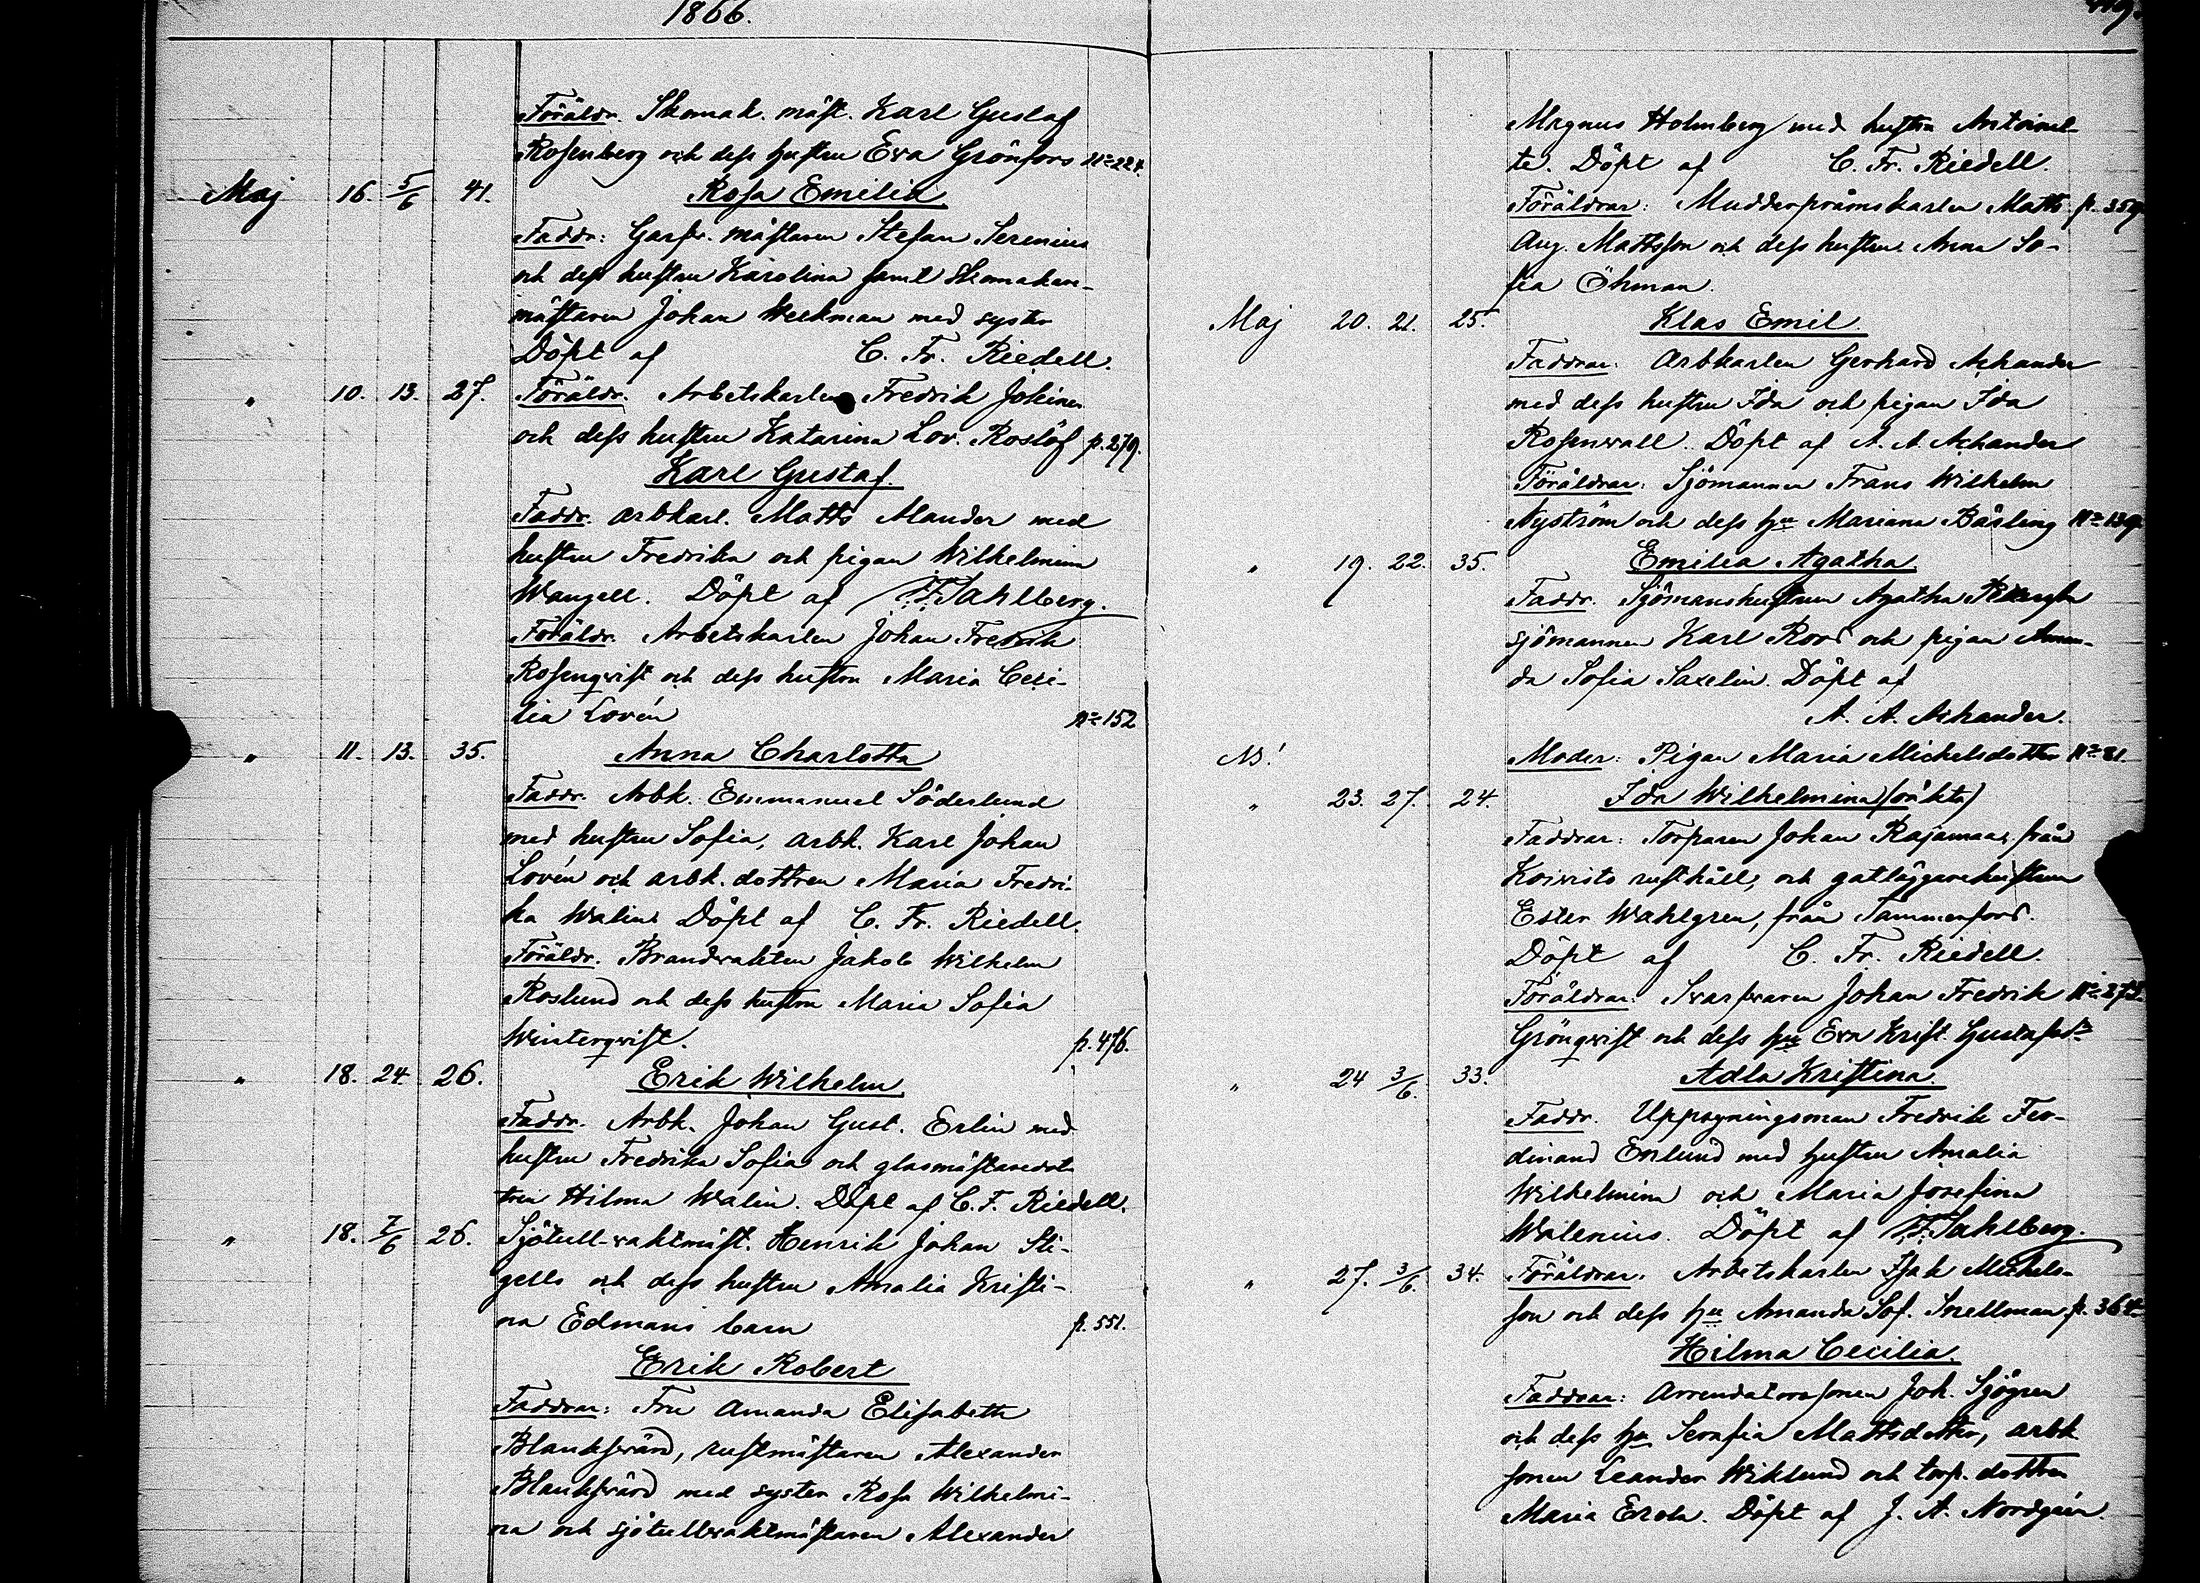 1866.
Föräldr. Skomak. mäst. Karl Gustaf
Rosenberg och dess hustru Eva Grönfors No 224.
Maj 16. 5/6 41. Rosa Emilia
Faddr: Garfv. mästaren Stefan Serenius
och dess hustru Karolina samt Skomakare-
mästaren Johan Weekman med syster
Döpt af C. Fr. Riedell.
" 10. 13. 27. Föräldr. Arbetskarlen Fredrik Johinen
och dess hustru Katarina Lov. Roslöf p. 279.
Karl Gustaf.
Faddr. arbkarl. Matts Alander med
hustru Fredrika och pigan Wilhelmina
Wangell. Döpt af F. Sahlberg.
Föräldr. Arbetskarlen Johan Fredrik
Rosenqvist och dess hustru Maria Ceci-
lia Lovén No 152
" 11. 13. 35. Anna Charlotta
Faddr. Arbk. Emmanuel Söderlund
med hustru Sofia, arbk. Karl Johan
Lovén och arbk. dottren Maria Fredri-
ka Walin. Döpt af C. Fr. Riedell.
Föräldr. Brandvakten Jakob Wilhelm
Roslund och dess hustru Maria Sofia
Winterqvist. p. 476.
" 18. 24. 26. Erik Wilhelm
Faddr. Arbk. Johan Gust. Erlin med
hustru Fredrika Sofia och glasmästaredot-
tren Hilma Walin. Döpt af C. F. Riedell.
" 18. 7/6 26. Sjötull-vaktmäst. Henrik Johan Sti-
gells och dess hustru Amalia Kristi-
na Edmans barn p. 551.
Erik Robert
Faddrar: Fru Amanda Elisabeth
Blankfvärd, rustmästaren Alexander
Blankfvärd med syster Rosa Wilhelmi-
na och sjötullvaktmästaren Alexander
Magnus Holmberg med hustru Antoinet-
te. Döpt af C. Fr. Riedell.
Föräldrar: Mudderpråmskarlen Matts p. 359.
Aug. Mattsson och dess hustru Anna So-
fia Öhman.
Maj 20. 21. 25. Klas Emil.
Faddrar: Arbkarlen Gerhard Achander
med dess hustru Ida och pigan Ida
Rosenvall. Döpt af A. A. Achander
Föräldrar: Sjömannen Frans Wilhelm
Nyström och dess hu Mariana Båsling No 139.
" 19. 22. 35. Emilia Agatha.
Faddr. Sjömanshustrun Agatha
sjömannen Karl Roos och pigan Aman-
da Sofia Saxelin. Döpt af
A. A. Achander.
Moder: Pigan Maria Michelsdotter No 81.
" 23. 27. 24. Ida Wilhelmina (oäkta)
Faddrar: Torparen Johan Rajamaa, från
Koivisto rusthåll, och gatläggarehustrun
Ester Wahlgren, från Tammerfors.
Döpt af C. Fr. Riedell.
Föräldrar: Svarfvaren Johan Fredrik No 272.
Grönqvist och dess hu Eva Krist. Gustafsdr
" 24 3/6. 33. Adla Kristina.
Faddr. Uppsyningsman Fredrik Fer-
dinand Enlund med hustru Amalia
Wilhelmina och Maria Josefina
Walenius. Döpt af F. Sahlberg.
" 27. 3/6. 34. Föräldrar. Arbetskarlen Isak Michels-
son och dess hu Amanda Sof. Snellman p. 364.
Hilma Cecilia.
Faddrar: Arrendatorssonen Joh. Sjögren
och dess hu Serafia Mattsdotter, arbk
sonen Leander Wiklund och torp. dottren
Maria Erola. Döpt af J. A. Nordgrén.